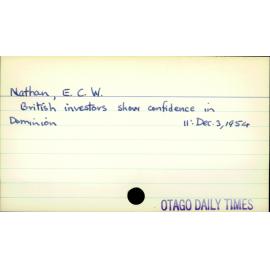 Nathan, E. C. W.
British investors show confidence in
Dominion 11: Dec. 3, 1954
OTAGO DAILY TIMES